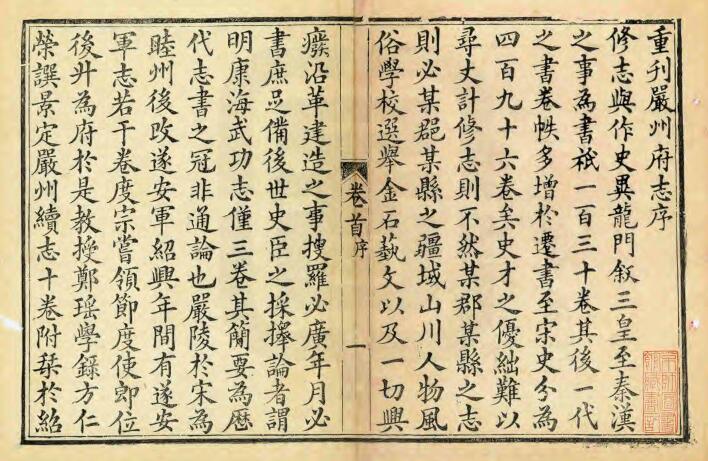 重刊嚴州府志序
修志與作史異龍門叙三皇至秦漢
之事為書祗一百三十卷其後一代
之書卷帙多增於遷書至宋史分為
四百九十六卷矣史才之優絀難以
尋丈計修志則不然某郡某縣之志
則必某郡某縣之疆域山川人物風
俗學校選舉金石藝文以及一切興
卷首
序
一
癈沿革建造之事搜羅必廣年月必
書庶足備後世史臣之採擇論者謂
明康海武功志僅三卷其簡要為歴
代志書之冠非通論也嚴陵於宋為
睦州後改遂安軍紹興年間有遂安
軍志若干卷度宗嘗領節度使即位
後升為府於是教授鄭瑶學錄方仁
榮譔景定嚴州續志十卷附栞於紹